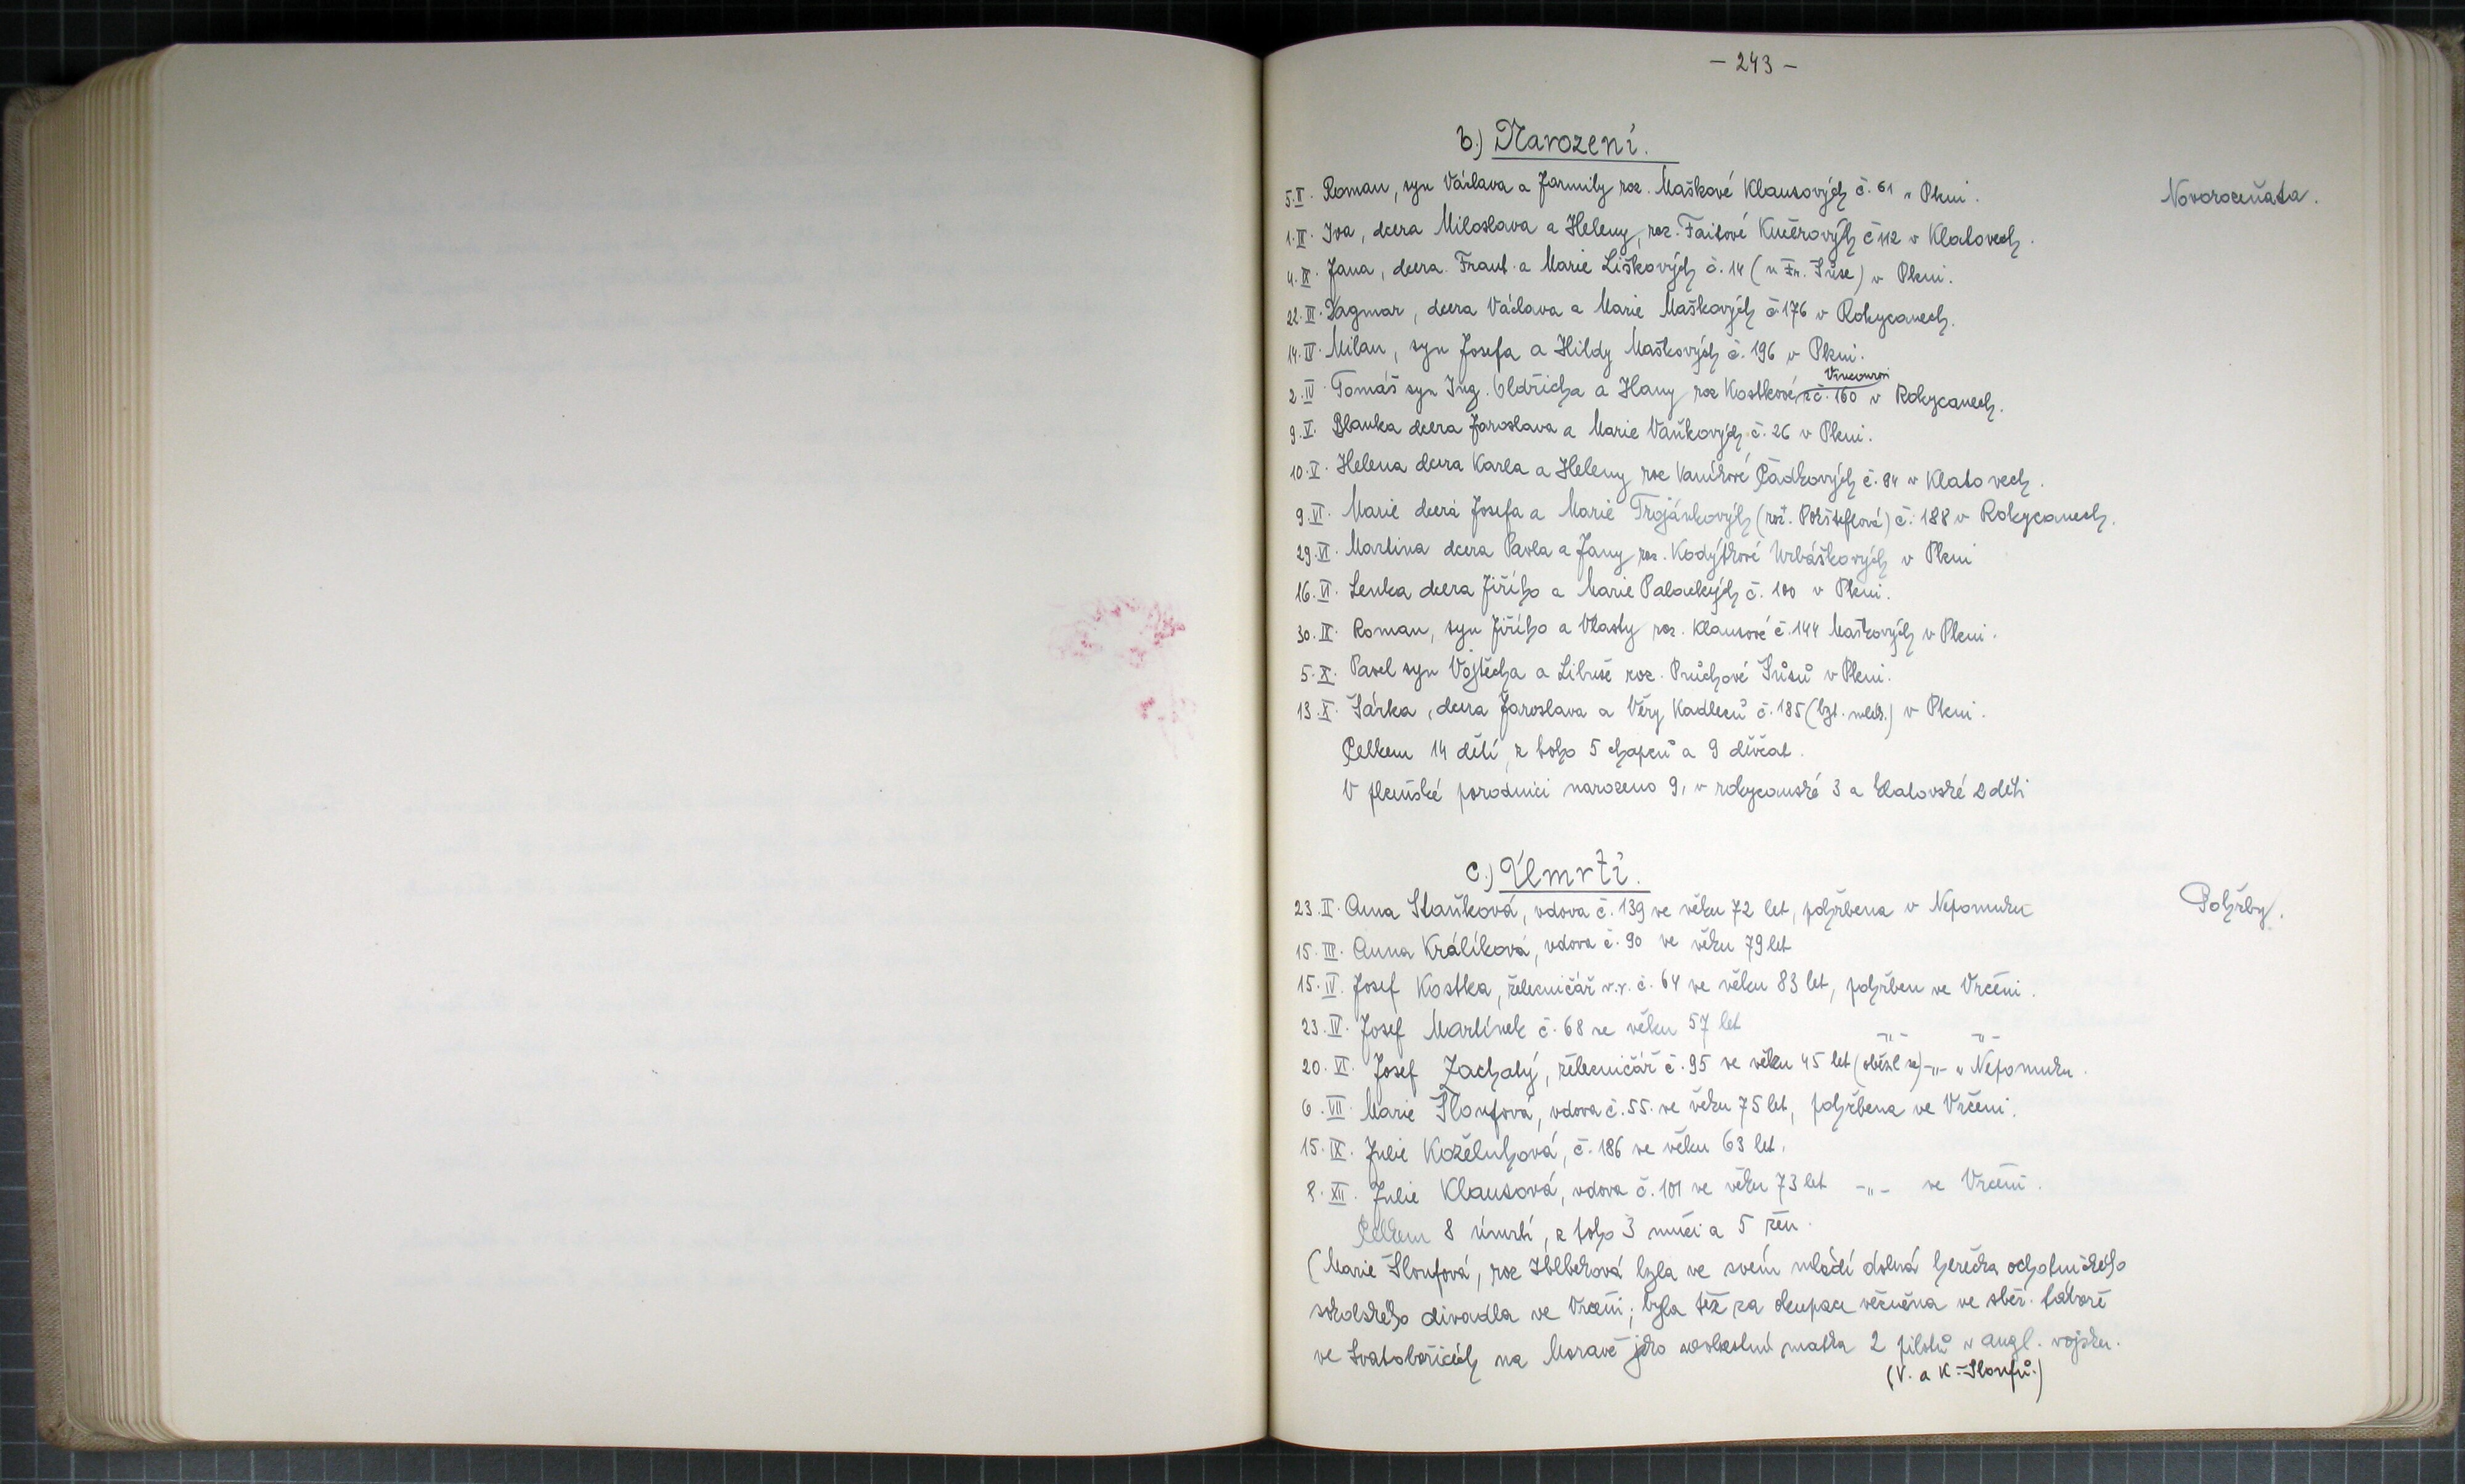 - 243 -
b.) Narození.
Novorozeňata.
5.II. Roman, syn Václava a Jarmily roz. Maškové Klausových č. 61 v Plzni.
1.III. Iva, dcera Miloslava a Heleny, roz. Faitové Kučerových č 112 v Klatovech.
Jana, dcera Frant. a Marie Liškových č. 14 (u Fr. Šůse) v Plzni.
22.III. Dagmar, dcera Václava a Marie Maškových č 176 v Rokycanech.
14.IV. Milan, syn Josefa a Hildy Maškových č. 196 v Plzni.
2.IV. Tomáš syn Ing. Oldřicha a Hany roz Kostkové, z č. 160 v Rokycanech.
9.V. Blanka dcera Jaroslava a Marie Vaňkových č. 26 v Plzni.
10.V. Helena dcera Karla a Heleny roz Vaníkové Čádkových č. 84 v Klatovech.
9.VI. Marie dcera Josefa a Marie Trojánkových (roz. ) č. 188 v Rokycanech.
29.VI. Martina dcera Pavla a Jany roz. Kodýtkové Urbáškových v Plzni
16.VI. Lenka dcera Jiřího a Marie Palackých č. 100 v Plzni.
30.IX. Roman, syn Jiřího a Vlasty roz. Klausové č. 144 Maškových v Plzni.
5.X. Pavel syn Vojtěcha a Libuše roz. Průchové Šůsů v Plzni.
13.X. Šárka, dcera Jaroslava a Věry Kadleců č. 185 (byt. ) v Plzni.
Celkem 14 dětí, z toho 5 chapců a 9 děvčat.
V plzeňské porodnici narozeno 9, v rokycanské 3 a klatovské 2 děti
c.) Úmrtí.
Pohřby.
23.II. Anna Staňková, vdova č. 139 ve věku 72 let, pohřbena v Nepomuku
15.III. Anna Králíková, vdova č. 90 ve věku 79 let
15.IV. Josef Kostka, železničář v.v. č. 64 ve věku 83 let, pohřben ve Vrčeni.
23.IV. Josef Martínek č. 68 ve věku 57 let -„- -„-
20.VI. Josef Zachatý, železničář č. 95 ve věku 45 let (oběsil se) -„- v Nepomuku.
6.VII. Marie Šloufová, vdova č. 55. ve věku 75 let, pohřbena ve Vrčeni.
15.IX. Julie Koželuhová, č. 186 ve věku 63 let.
8.XII. Julie Klausová, vdova č. 101 ve věku 73 let -„- ve Vrčeni.
Celkem 8 úmrtí, z toho 3 muži a 5 žen.
(Marie Šloufová, roz byla ve svém mládí dobrá herečka ochotnického
sokolského divadla ve Vrčeni; byla též za okupace vězněna ve sběr. táboře
ve Svatobořicích na Moravě jako matka 2 pilotů v angl. vojsku.
(V. a K. Šloufů.)